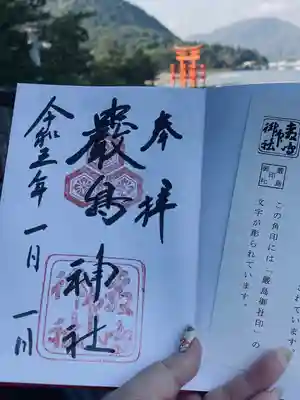 奉拝
嚴島神社
令和五年一月一日
この角印には「厳島御社印」の
文字が彫られています。